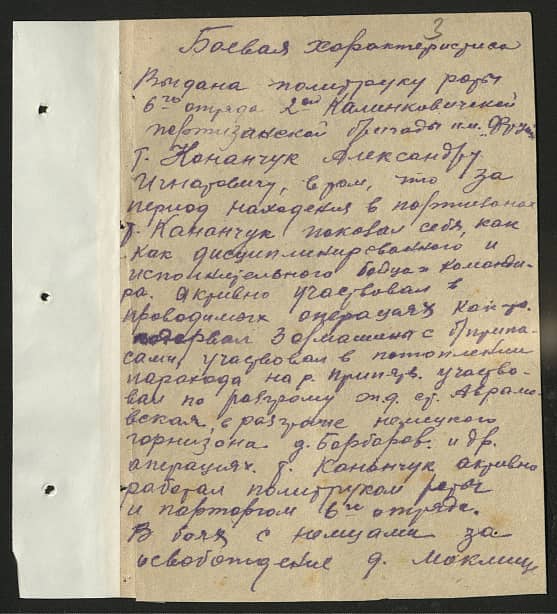 3
Боевая характеристика
Выдана политруку роты
6го отряда 2ой Калинковичской
партизанской бригады им. Фрунзе
т. Конанчук Александру
Игнатовичу, в том, что за
период находения в партизанах
т. Кананчук показал себя, как
как дисциплинированного и
исполнительного бойца и команди-
ра. Активно участвовал в
проводимых операциях как-то.
подорвал 3 автомашины с боеприпа-
сами, участвовал в потоплении
парахода на р. Припять. участво-
вал по разгрому ж.д. ст. Аврамо-
вская, в разгроме немецкого
горнизона д. Барбаров. и др.
операциях. т. Кананчук активно
работал политруком роты
и парторгом 6го отряда.
В боях с немцами за
освобождение д.